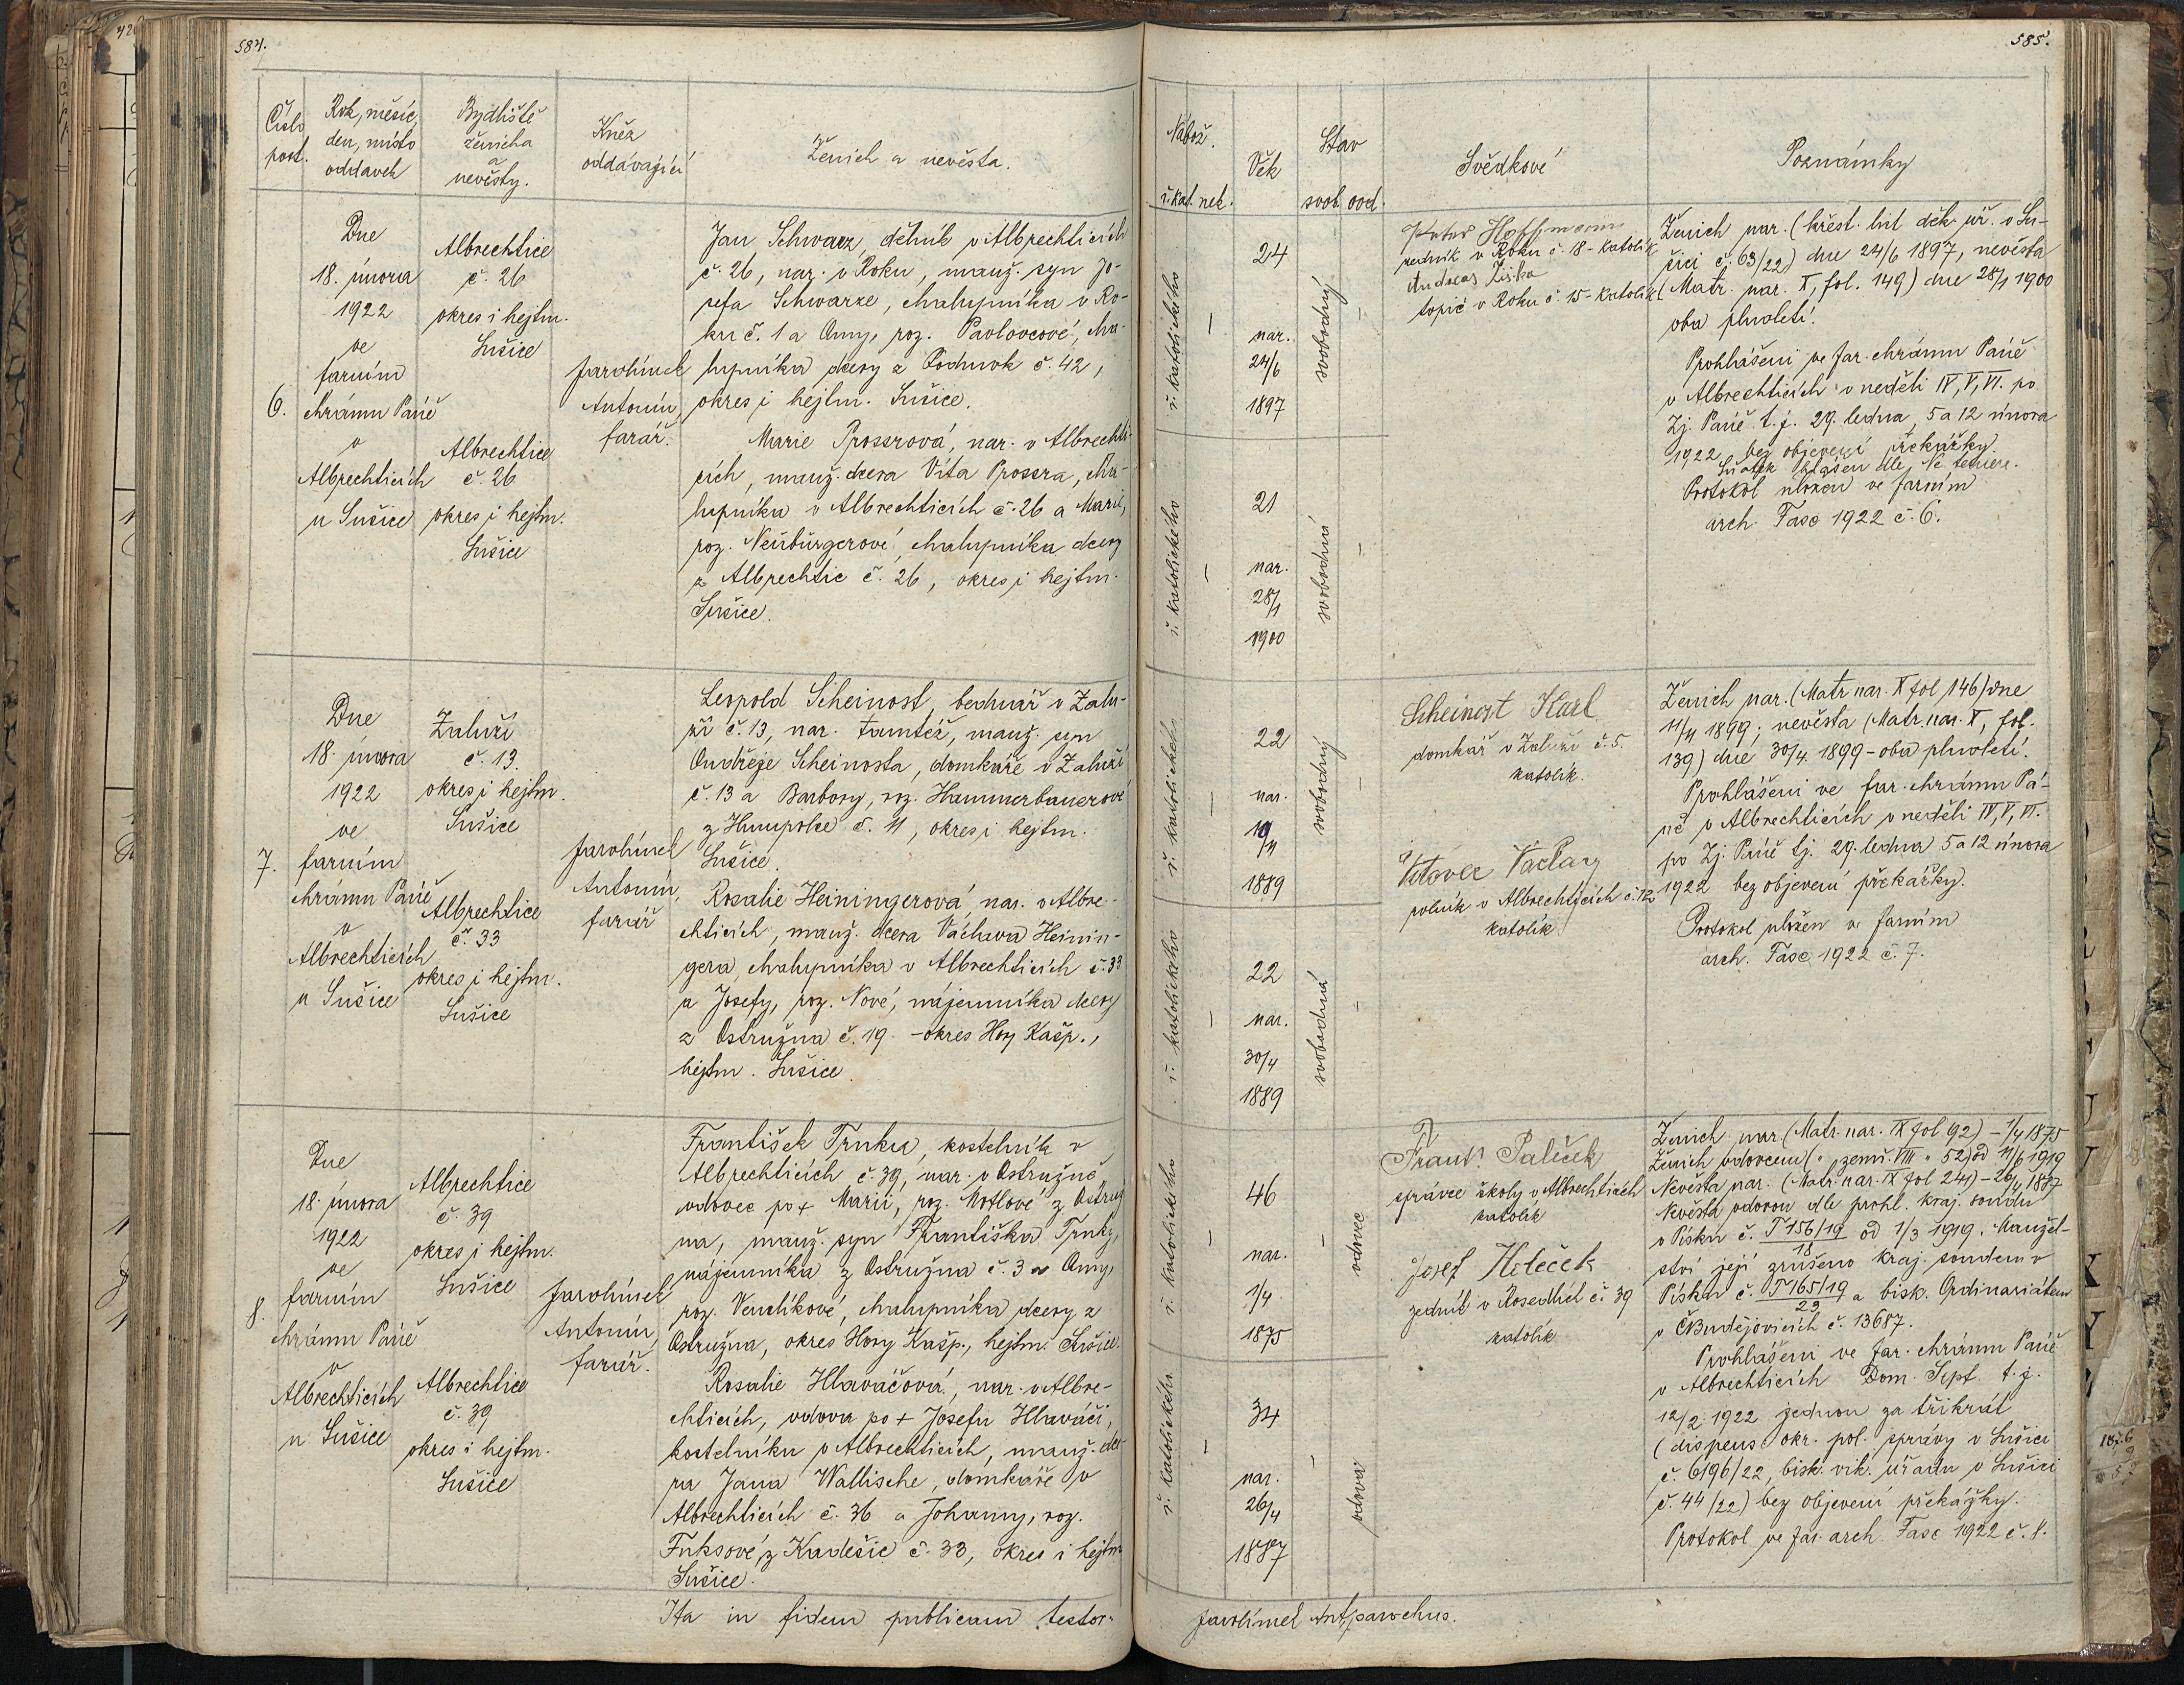 584.
Číslo
post.
Rok, měsíc,
den, místo
oddavek
Bydliště
ženicha
a
nevěsty.
Kněz
oddávající
Ženich a nevěsta.
6.
Dne
18. února
1922
ve
farním
chrámu Páně
v
Albrechticích
u Sušice
Albrechtice
č. 26
okres i hejtm.
Sušice
Albrechtice
č. 26
okres i hejtm.
Sušice
Jarolímek
Antonín,
farář.
Jan Schwarz, dělník v Albrechticích
č. 26, nar. v Roku, manž. syn Jo-
sefa Schwarze, chalupníka v Ro-
ku č. 1 a Anny, roz. Pavlovcové, cha-
lupníka dcery z Podmok č. 42,
okres i hejtm. Sušice.
Marie Prossrová, nar. v Albrechti-
cích, manž. dcera Víta Prossra, cha-
lupníka v Albrechticích č. 26 a Marie,
roz. Neubürgerové, chalupníka dcery
z Albrechtic č. 26, okres i hejtm.
Sušice.
7.
Dne
18. února
1922
ve
farním
chrámu Páně
v
Albrechticích
u Sušice
Zaluží
č. 13.
okres i hejtm.
Sušice
Albrechtice
č. 33
okres i hejtm.
Sušice
Jarolímek
Antonín,
farář
Leopold Scheinost, bednář v Zalu-
ží č. 13, nar. tamtéž, manž. syn
Ondřeje Scheinosta, domkáře v Zaluží
č. 13 a Barbory, roz. Hammerbauerové
z Humpolce č. 11, okres i hejtm.
Sušice.
Rosalie Heiningerová, nar. v Albre-
chticích, manž. dcera Václava Heinin-
gera, chalupníka v Albrechticích č. 33
a Josefy, roz. Nové, nájemníka dcery
z Ostružna č. 19 - okres Hory Kašp.,
hejtm. Sušice.
8.
Dne
18. února
1922
ve
farním
chrámu Páně
v
Albrechticích
u Sušice
Albrechtice
č. 39
okres i hejtm.
Sušice
Albrechtice
č. 39
okres i hejtm.
Sušice
Jarolímek
Antonín,
farář.
František Trnka, kostelník v
Albrechticích č. 39, nar. v Ostružně
vdovec po + Marii, roz. Motlové z Ostruž
na, manž. syn Františka Trnky,
nájemníka z Ostružna č. 3 a Anny,
roz. Vendlíkové, chalupníka dcery z
Ostružna, okres Hory Kašp., hejtm. Sušice.
Rosalie Hlaváčová, nar. v Albre-
chticích, vdova po + Josefu Hlaváči,
kostelníku v Albrechticích, manž. dce-
ra Jana Wallische, domkáře v
Albrechticích č. 36 a Johanny, roz.
Fuksové z Kadešic č. 33, okres i hejtm
Sušice.
Ita in fidem publicam testor:
585.
Nábož.
ř. kat. nek.
Věk
Stav
svob. ovd.
Svědkové
Poznámky
ř. katolického
-
24
nar.
24/6
1897
svobodný
-
ř. katolického
-
21
nar.
28/1
1900
svobodná
-
Peter Hoffmann
rolník v Roku č. 18 - katolík
Andreas Žiška
topič v Roku č. 15 - katolík
Ženich nar. (křest. list děk. úř. v Su-
šici č. 63/22) dne 24/6 1897, nevěsta
(Matr. nar. X, fol. 149) dne 28/1 1900
oba plnoletí.
Prohlášeni ve far. chrámu Páně
v Albrechticích v neděli IV, V, VI. po
Zj. Páně t. j. 29. ledna, 5 a 12 února
1922 bez objevení překážky.
Sňatek hlášen dle Ne temere.
Protokol uložen ve farním
arch. Fasc 1922 č. 6.
ř. katolického
-
22
nar.
19/11
1889
svobodný
-
ř. katolického
-
22
nar.
30/4
1889
svobodná
-
Scheinost Karl
domkář v Zaluží č. 5.
katolík.
Vítovec Václav
rolník v Albrechticích č. 12
katolík
Ženich nar. (Matr nar. X fol 146) dne
11/11 1899; nevěsta (Matr. nar. X, fol.
139) dne 30/4 1899 - oba plnoletí.
Prohlášeni ve far. chrámu Pá-
ně v Albrechticích v neděli IV, V, VI.
po Zj. Páně tj. 29. ledna 5 a 12 února
1922 bez objevení překážky.
Protokol uložen ve farním
arch. Fasc 1922 č. 7.
ř. katolického
-
46
nar.
1/4
1875
-
vdovec
ř. katolického
-
34
nar.
26/4
1887
-
vdova
Frant. Paleček
správce školy v Albrechticích
katolík
Josef Holeček
zedník v Rosedlích č. 39
katolík
Ženich nar. (Matr. nar. IX fol 92) - 1/4 1875
Ženich vdovcem ( " zemř. VIII " 52) od 11/6 1919
Nevěsta nar. (Matr. nar. IX fol 241) - 26/4 1887
Nevěsta vdovou dle prohl. kraj. soudu
v Písku č. T 156/19/18 od 1/3 1919. Manžel-
ství její zrušeno kraj. soudem v
Písku č. T 165/19/23 a bisk. Ordinariátem
v Č. Budějovicích č. 13687.
Prohlášeni ve far. chrámu Páně
v Albrechticích Dom. Sept. t. j.
12/2 1922 jednou za třikrát
(dispens okr. pol. správy v Sušici
č. 6196/22, bisk. vik. úřadu v Sušici
č. 44/22) bez objevení překážky.
Protokol ve far. arch. Fasc 1922 č. 8.
Jarolímek Ant, parochus.